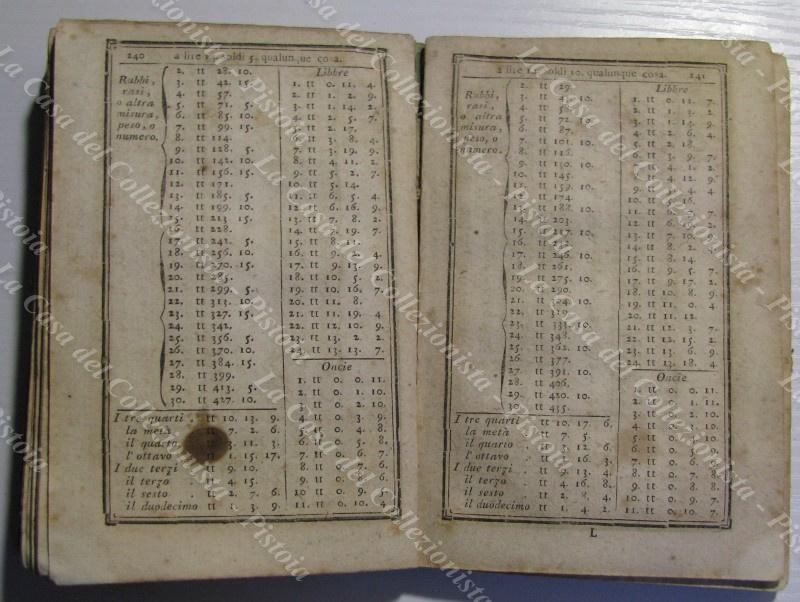 240 a lire 14 soldi 5. qualunque cosa.
Rubbi,
rasi,
o altra
misura,
peso, o
numero.
2. tt 28. 10.
3. tt 42. 15.
4. tt 57.
5. tt 71. 5.
6. tt 85. 10.
7. tt 99. 15.
8. tt 114.
9. tt 128. 5.
10. tt 142. 10.
11. tt 156. 15.
12. tt 171.
13. tt 185. 5.
14. tt 199. 10.
15. tt 213. 15.
16. tt 228.
17. tt 242. 5.
18. tt 256. 10.
19. tt 270. 15.
20. tt 285.
21. tt 299. 5.
22. tt 313. 10.
23. tt 327. 15.
24. tt 342.
25. tt 356. 5.
26. tt 370. 10.
27. tt 384. 15.
28. tt 399.
29. tt 413. 5.
30. tt 427. 10.
I tre quarti tt 10. 13. 9.
la metà tt 7. 2. 6.
il quarto 3. 11. 3.
l'ottavo 1. 15. 17.
I due terzi tt 9. 10.
il terzo tt 4. 15.
il sesto tt 2. 7. 6.
il duodecimo tt 1. 3. 9.
Libbre
1. tt 0. 11. 4.
2. tt 1. 2. 9.
3. tt 1. 14. 2.
4. tt 2. 5. 7.
5. tt 2. 17.
6. tt 3. 8. 4.
7. tt 3. 19. 9.
8. tt 4. 11. 2.
9. tt 5. 2. 7.
10. tt 5. 14.
11. tt 6. 5. 4.
12. tt 6. 16. 9.
13. tt 7. 8. 2.
14. tt 7. 19. 7.
15. tt 8. 11.
16. tt 9. 2. 4.
17. tt 9. 13. 9.
18. tt 10. 5. 2.
19. tt 10. 16. 7.
20. tt 11. 8.
21. tt 11. 19. 4.
22. tt 12. 10. 9.
23. tt 13. 2. 2.
24. tt 13. 13. 7.
Oncie
1. tt 0. 0. 11.
2. tt 0. 1. 10.
3. tt 0. 2. 10.
4. tt 0. 3. 9.
5. tt 0. 4. 8.
6. tt 0. 5. 8.
7. tt 0. 6. 7.
8. tt 0. 7. 6.
9. tt 0. 8. 6.
10 tt 0. 9. 5.
11. tt 0. 10. 4.
a lire 14 soldi 10. qualunque cosa. 241
Rubbi,
rasi,
o altra
misura,
peso, o
numero.
2. tt 29.
3. tt 43. 10.
4. tt 58.
5. tt 72. 10.
6. tt 87.
7. tt 101. 10.
8. tt 116.
9. tt 130. 10.
10. tt 145.
11. tt 159. 10.
12. tt 174.
13. tt 188. 10.
14. tt 203.
15. tt 217. 10.
16. tt 232.
17. tt 246. 10.
18. tt 261.
19. tt 275. 10.
20. tt 290.
21. tt 304. 10.
22. tt 319.
23. tt 333. 10.
24. tt 348.
25. tt 362. 10.
26. tt 377.
27. tt 391. 10.
28. tt 406.
29. tt 420. 10.
30. tt 435.
I tre quarti tt 10. 17. 6.
la metà tt 7. 5.
il quarto tt 3. 12. 6.
l'ottavo tt 1. 16. 3.
I due terzi tt 9. 13. 4.
il terzo tt 4. 16. 8.
il sesto tt 2. 8. 4.
il duodecimo tt 1. 4. 2.
Libbre
1. tt 0. 11. 7.
2. tt 1. 3. 2.
3. tt 1. 14. 9.
4. tt 2. 6. 4.
5. tt 2. 18.
6. tt 3. 9. 7.
7. tt 4. 1. 2.
8. tt 4. 12. 9.
9. tt 5. 4. 4.
10. tt 5. 16.
11. tt 6. 7. 7.
12. tt 6. 19. 2.
13. tt 7. 10. 9.
14. tt 8. 2. 4.
15. tt 8. 14.
16. tt 9. 5. 7.
17. tt 9. 17. 2.
18. tt 10. 8. 9.
19. tt 11. 0. 4.
20. tt 11. 12.
21. tt 12. 3. 7.
22. tt 12. 15. 2.
23. tt 13. 6. 9.
24. tt 13. 18. 4.
Oncie
1. tt 0. 0. 11.
2. tt 0. 1. 11.
3. tt 0. 2. 10.
4. tt 0. 3. 10.
5. tt 0. 4. 9.
6. tt 0. 5. 9.
7. tt 0. 6. 9.
8. tt 0. 7. 8.
9. tt 0. 8. 8.
10. tt 0. 9. 7.
11. tt 0. 10. 7.
L
La Casa del Collezionista - Pistoia